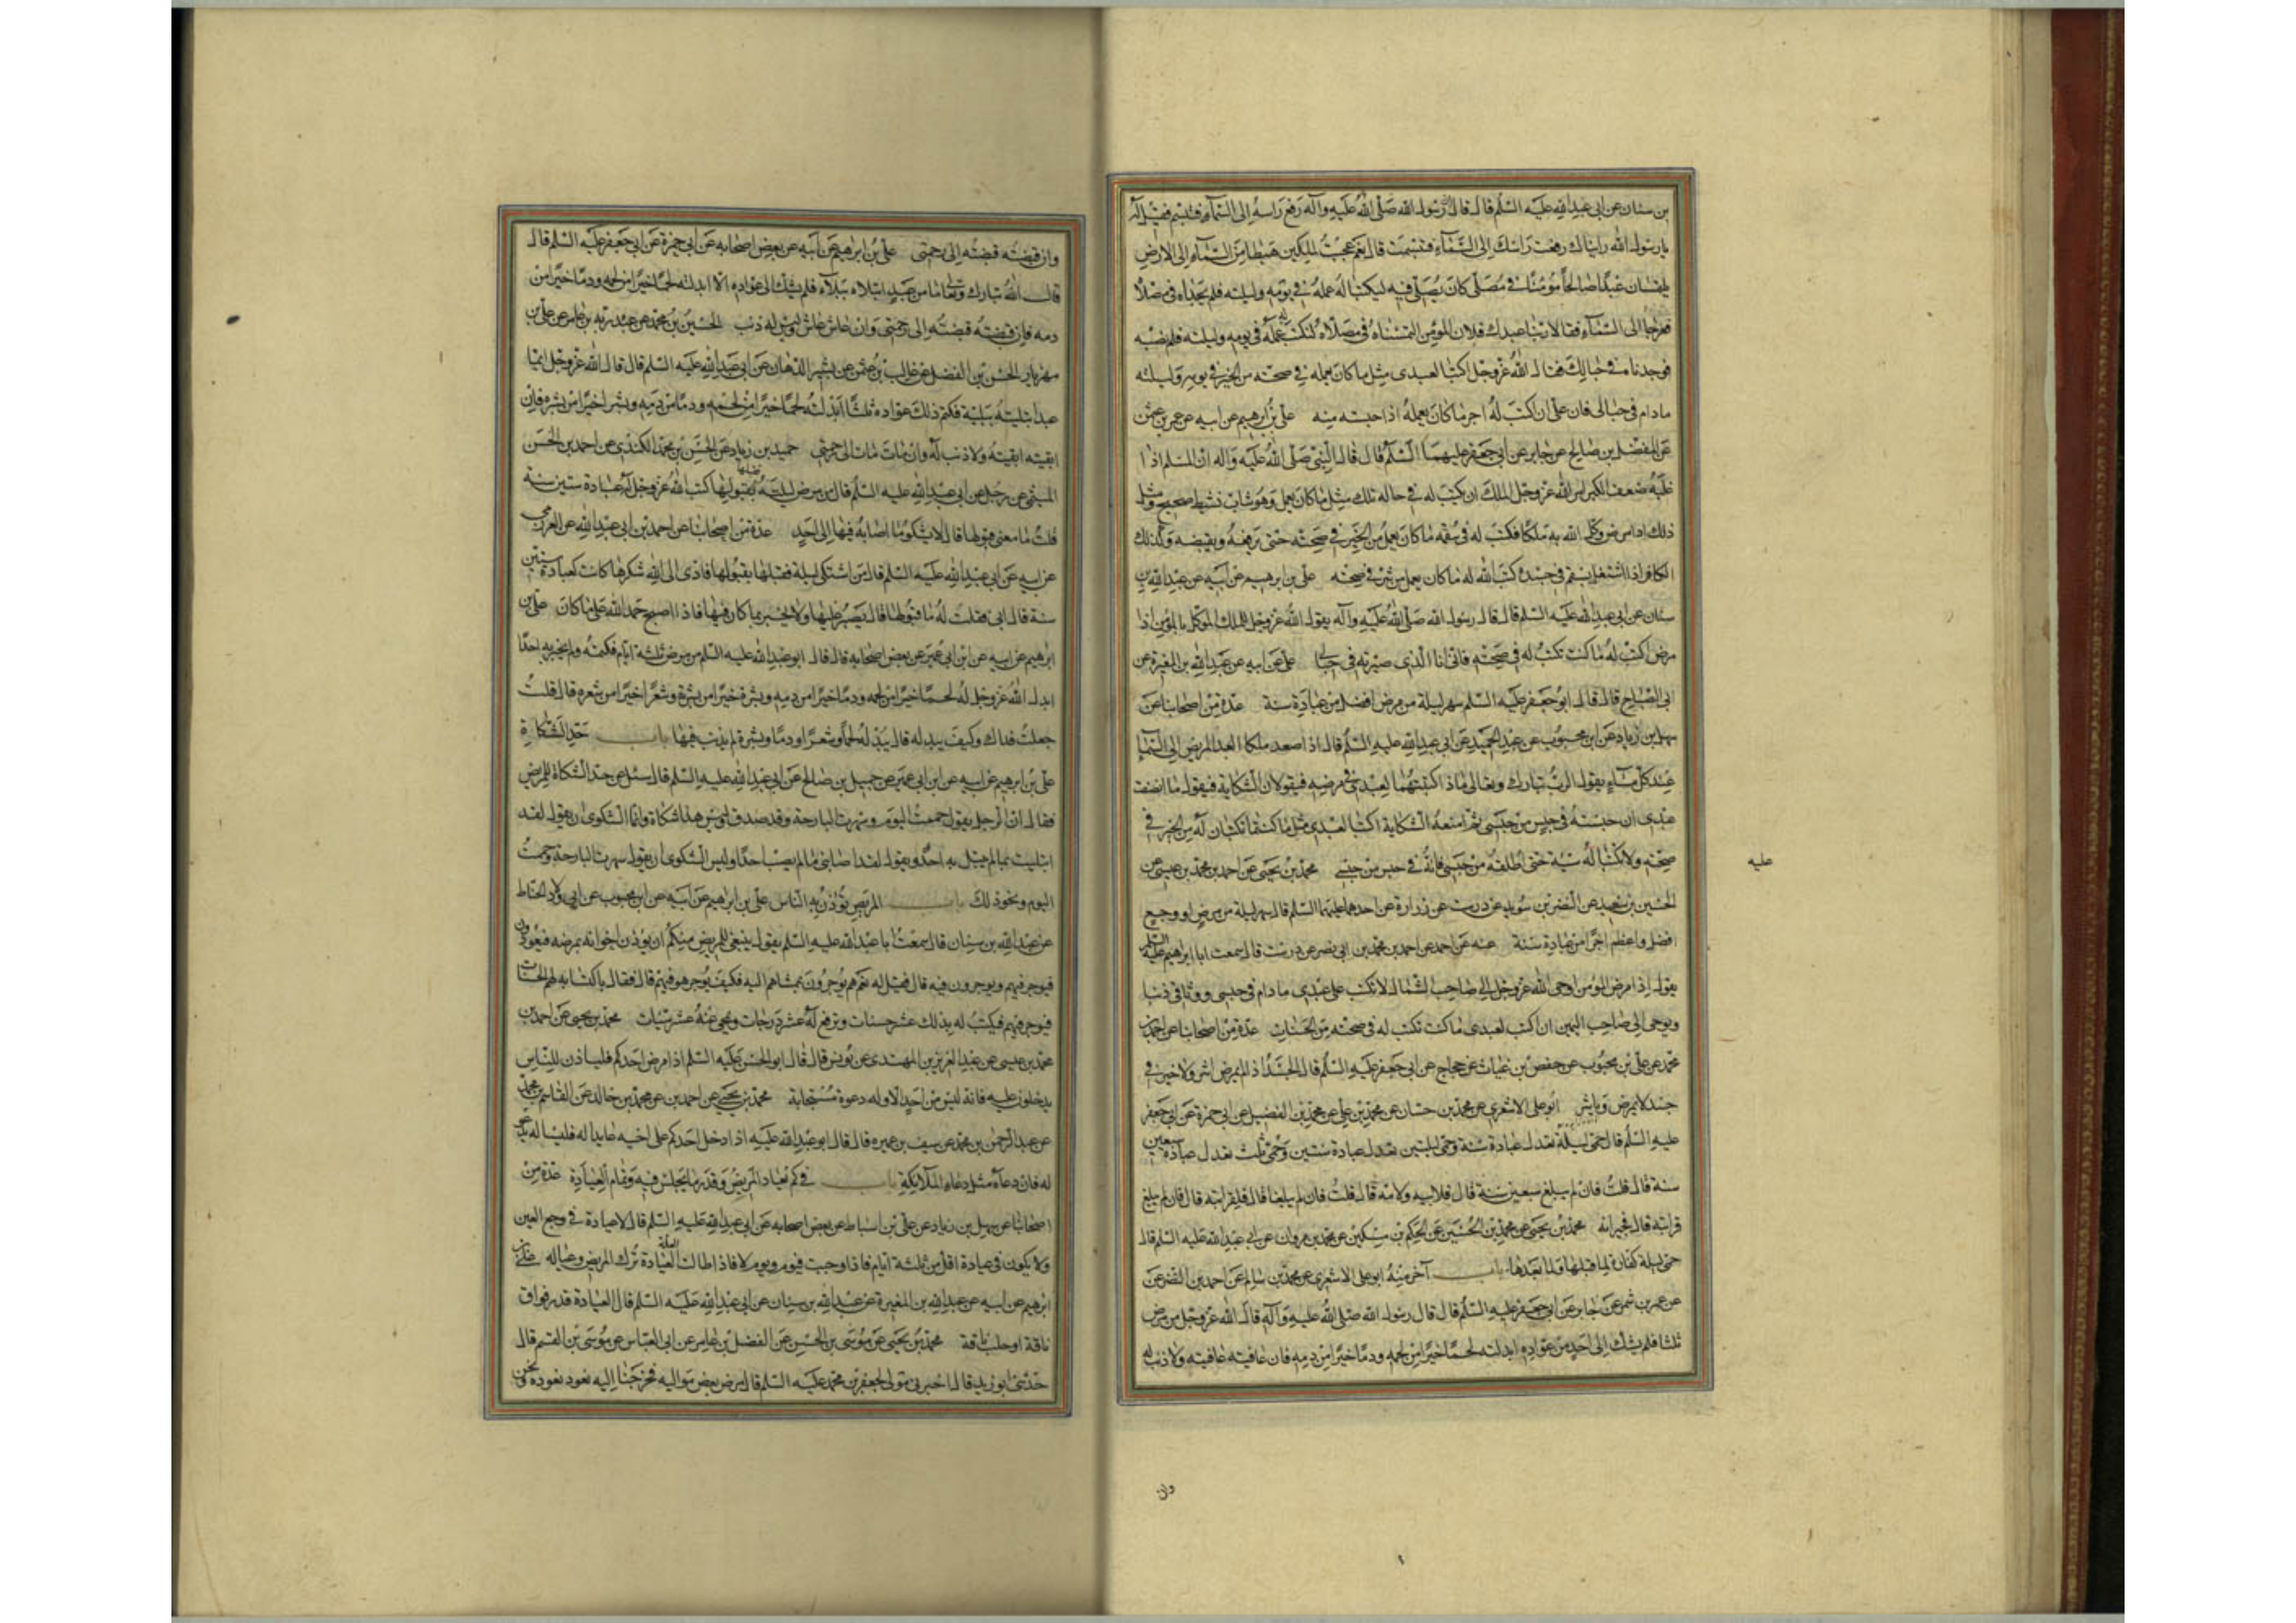 بن سنان عن ابی عبدالله علیه السّلم قال قال رسول الله صلّی الله علیه وآله رفع راسه الی السّمآء فتبسّم فقیل له
یا رسول الله رایناك رفعت راسك الی السّمآء فتبسّمت قال نعم عجبتُ لملکین هبطا من السّمآء الی الارض
یلتمسان عبدًا صالحًا مؤمنًا فی مُصلّی کان یُصلّی فیه لیکتبا له عمله فی یومه ولیلته فلم یجداه فی مصلّاه
فعرجا الی السّمآء فقالا ربّنا عبدك فلان المؤمن التمسناه فی مصلّاه لنکتب له عمله فی یومه ولیلته فلم نصبه
فوجدناه فی حبالك فقال الله عزّوجلّ اکتبا لعبدی مثل ما کان یعمله فی صحّته من الخیر فی یومه ولیلته
مادام فی حبالی فان علیّ ان کتب له اجر ما کان یعمله اذا حبسته منه علیّ بن ابرهیم عن ابیه عن عمرو بن عثمن
عن المفضّل بن صالح عن جابر عن ابی جعفر علیهما السّلم قال قال النّبیّ صلّی الله علیه وآله انّ المسلم اذا
غلبه ضعف الکبر امر الله عزّوجلّ الملك ان یکتب له فی حاله تلك مثل ما کان یعمل وهو شابّ نشیط صحیح ومثل
ذلك اذا مرض وکّل الله به ملکًا فکتب له فی سقمه ما کان یعمل من الخیر فی صحّته حتی یرفعه ویقبضه وکذلك
الکافر اذا اشتغل بسقم فی جسده کتب الله له ما کان یعمل من شرّ فی صحّته علیّ بن ابرهیم عن ابیه عن عبدالله بن
سنان عن ابی عبدالله علیه السّلم قال قال رسول الله صلّی الله علیه وآله یقول الله عزّوجلّ للملك الموکّل بالمؤمن اذا
مرض اکتب له ما کنت تکتب له فی صحّته فانّی انا الّذی صیّرته فی حبالی علیّ عن ابیه عن عبدالله بن المغیرة عن
ابی الصّباح قال قال ابوجعفر علیه السّلم سهر لیلة من مرض افضل من عبادة سنة عدّة من اصحابنا عن
سهل بن زیاد عن ابن محبوب عن عبد الحمید عن ابی عبدالله علیه السّلم قال اذا صعد ملکا العبد المریض الی السّمآء
عند کلّ مسآء یقول الرّبّ تبارك وتعالی ماذا کتبتما لعبدی فی مرضه فیقولان الشّکایة فیقول ما انصفت
عبدی ان حبسته فی حبس من حبسی ثم امنعه الشّکایة اکتبا لعبدی مثل ما کنتما تکتبان له من الخیر فی
صحّته ولا تکتبا له سیّئة حتی اطلقه من حبسی فانّه فی حبس من حبسی محمّد بن یحیی عن احمد بن محمّد بن عیسی عن
علیه
الحسین بن سعید عن النضر بن سوید عن درست عن زرارة عن احدهما علیهما السّلم قال سهر لیلة من مرض او وجع
افضل واعظم اجرًا من عبادة سنة عنه عن احمد عن احمد بن محمّد بن ابی نصر عن درست قال سمعت ابا ابرهیم علیه السّلم
یقول اذا مرض المؤمن اوحی الله عزّوجلّ الی صاحب الشّمال لا تکتب علی عبدی مادام فی حبسی ووثاقی ذنبا
ویوحی الی صاحب الیمین ان اکتب لعبدی ما کنت تکتب له فی صحّته من الحسنات عدّة من اصحابنا عن احمد بن
محمّد عن علیّ بن محبوب عن حفص بن غیاث عن حجاج عن ابی جعفر علیه السّلم قال الجسد اذا لم یمرض اشر ولا خیر فی
جسد لا یمرض ویاشر ابو علی الاشعری عن محمّد بن حسّان عن محمّد بن علی عن محمّد بن الفضیل عن ابی حمزة عن ابی جعفر
علیه السّلم قال حمّی لیلة تعدل عبادة سنة وحمّی لیلتین تعدل عبادة سنتین وحمّی ثلث تعدل عبادة سبعین
سنة قال قلت فان لم یبلغ سبعین سنة قال فلابیه ولامّه قال قلت فان لم یبلغا قال فلقرابته قال فان لم یبلغ
قرابته قال فجیرانه محمّد بن یحیی عن محمّد بن الحسین عن الحکم بن مسکین عن محمّد بن مروان عن ابی عبدالله علیه السّلم قال
حمّی لیلة کفّارة لما قبلها ولما بعدها باب آخر منه ابو علی الاشعری عن محمّد بن سالم عن احمد بن النضر عن
عمرو بن شمر عن جابر عن ابی جعفر علیه السّلم قال قال رسول الله صلّی الله علیه وآله قال الله عزّوجلّ من مرض
ثلثا فلم یشك الی احد من عوّاده ابدلته لحمًا خیرًا من لحمه ودمًا خیرًا من دمه فان عافیته عافیته ولا ذنب له
وان
وان قبضته قبضته الی رحمتی علیّ بن ابرهیم عن ابیه عن بعض اصحابه عن ابی حمزة عن ابی جعفر علیه السّلم قال
قال الله تبارك وتعالی ما من عبد ابتلاه ببلآء فلم یشك الی عوّاده الّا ابدلته لحمًا خیرًا من لحمه ودمًا خیرًا من
دمه فان قبضته قبضته الی رحمتی وان عاش عاش لیس له ذنب الحسین بن محمّد عن عبد ربّه بن عامر عن علیّ بن
مهزیار الحسن بن الفضل عن غالب بن عثمن عن بشیر الدّهان عن ابی عبدالله علیه السّلم قال قال الله عزّوجلّ ایّما
عبد ابتلیته ببلیّة فکتم ذلك عوّاده ثلثًا ابدلته لحمًا خیرًا من لحمه ودمًا من دمه وبشرا خیرًا من بشره فان
ابقیته ابقیته ولا ذنب له وان مات مات الی رحمتی حمید بن زیاد عن الحسن بن محمّد الکندی عن احمد بن الحسن
المیثمی عن رجل عن ابی عبدالله علیه السّلم قال من مرض لیلة فقبلها بقبولها کتب الله عزّوجلّ له عبادة ستین سنة
قلت ما معنی قبولها قال لا یشکو ما اصابه فیها الی احد عدّة من اصحابنا عن احمد بن ابی عبدالله عن العرزمی
عن ابیه عن ابی عبدالله علیه السّلم قال من اشتکی لیلة فقبلها بقبولها فادّی الی الله شکرها کانت کعبادة ستین
سنة قال ابی فقلت له ما قبولها قال یصبر علیها ولا یخبر بما کان فیها فاذا اصبح حمد الله علی ما کان علیّ بن
ابرهیم عن ابیه عن ابن ابی عمیر عن بعض اصحابه قال قال ابو عبدالله علیه السّلم من مرض ثلثة ایّام فکتمه ولم یخبر به احدًا
ابدل الله عزّوجلّ له لحمًا خیرًا من لحمه ودمًا خیرًا من دمه وبشرة خیرًا من بشرة وشعرًا خیرًا من شعره قال قلت
جعلت فداك وکیف یبدله قال یبدّله لحمًا وشعرًا ودمًا وبشرة لم یذنب فیها باب حدّ الشّکاة
علیّ بن ابرهیم عن ابیه عن ابن ابی عمیر عن جمیل بن صالح عن ابی عبدالله علیه السّلم قال سئل عن حدّ الشّکاة للمریض
فقال انّ الرّجل یقول حممت الیوم وسهرت البارحة وقد صدق ولیس هذا شکاة وانّما الشّکوی ان یقول لقد
ابتلیت بما لم یبتل به احد ویقول لقد اصابنی ما لم یصب احدًا ولیس الشّکوی ان یقول سهرت البارحة وحممت
الیوم ونحو ذلك باب المریض یؤذن به النّاس علیّ بن ابرهیم عن ابیه عن ابن محبوب عن ابی ولّاد الحنّاط
عن عبدالله بن سنان قال سمعت ابا عبدالله علیه السّلم یقول ینبغی للمریض منکم ان یؤذن اخوانه بمرضه فیعودونه
فیوجر فیهم ویوجرون فیه قال فقیل له نعم هم یوجرون بممشاهم الیه فکیف یوجر هو فیهم قال فقال باکتسابه لهم الحسنات
فیوجر فیهم فیکتب له بذلك عشر حسنات وترفع له عشر درجات ویمحی عنه عشر سیّئات محمّد بن یحیی عن احمد بن
محمّد بن عیسی عن عبد العزیز بن المهتدی عن یونس قال قال ابو الحسن علیه السّلم اذا مرض احدکم فلیاذن للنّاس
یدخلون علیه فانّه لیس من احد الّا وله دعوة مستجابة محمّد بن یحیی عن احمد بن عن محمّد بن خالد عن القاسم بن محمّد
عن عبد الرّحمن بن محمّد عن سیف بن عمیره قال قال ابو عبدالله علیه اذا دخل احدکم علی اخیه عایدا له فلیساله یدعو
له فان دعآه مثل دعاء الملآئکة باب فی کم یُعاد المریض وقدر ما یجلس فیه وتمام العیادة عدّة من
اصحابنا عن سهل بن زیاد عن علیّ بن اسباط عن بعض اصحابه عن ابی عبدالله علیه السّلم قال لا عیادة فی وجع العین
ولا یکون فی عیادة اقلّ من ثلثة ایّام فاذا وجبت فیوم ویوم لا فاذا طالت العلّة ترك المریض وعیاله علیّ بن
ابرهیم عن ابیه عن عبدالله بن المغیرة عن عبدالله بن سنان عن ابی عبدالله علیه السّلم قال العیادة قدر فواق
ناقة او حلب ناقة محمّد بن یحیی عن موسی بن الحسن عن الفضل بن عامر عن ابی العبّاس عن موسی بن القسم قال
حدّثنی ابو زید قال اخبرنی مولی لجعفر بن محمّد علیه السّلم قال مرض بعض موالیه فخرجنا الیه نعود نعوده ونحن